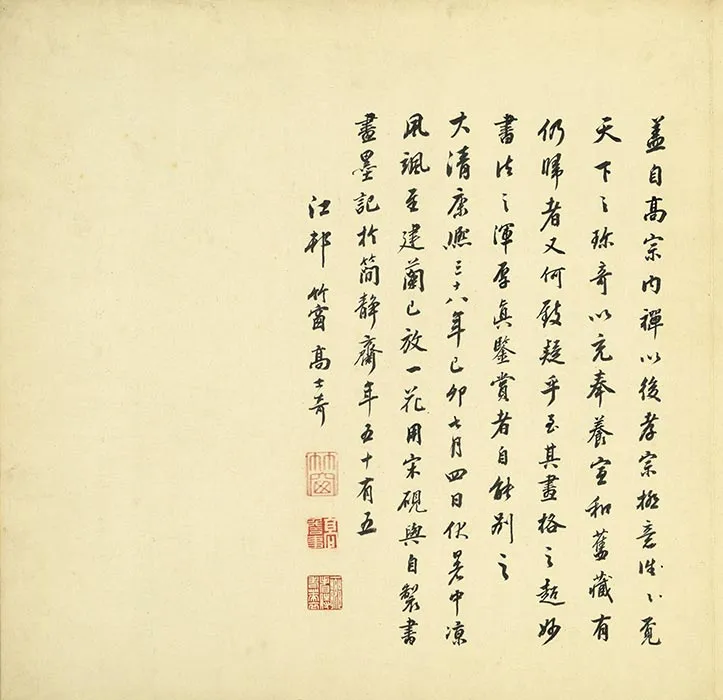 蓋自高宗内禪以後孝宗極意覓
天下之珎奇以充奉養宣和舊藏有
仍歸者又何致疑乎至其畫格之超妙
書法之渾厚真鑒賞者自能別之
大清康熙三十八年己卯七月四日伏暑中凉
風颯至建蘭已放一花用宋硯與自製書
畫墨記於簡靜齋年五十有五
江邨竹窗高士奇
竹窗